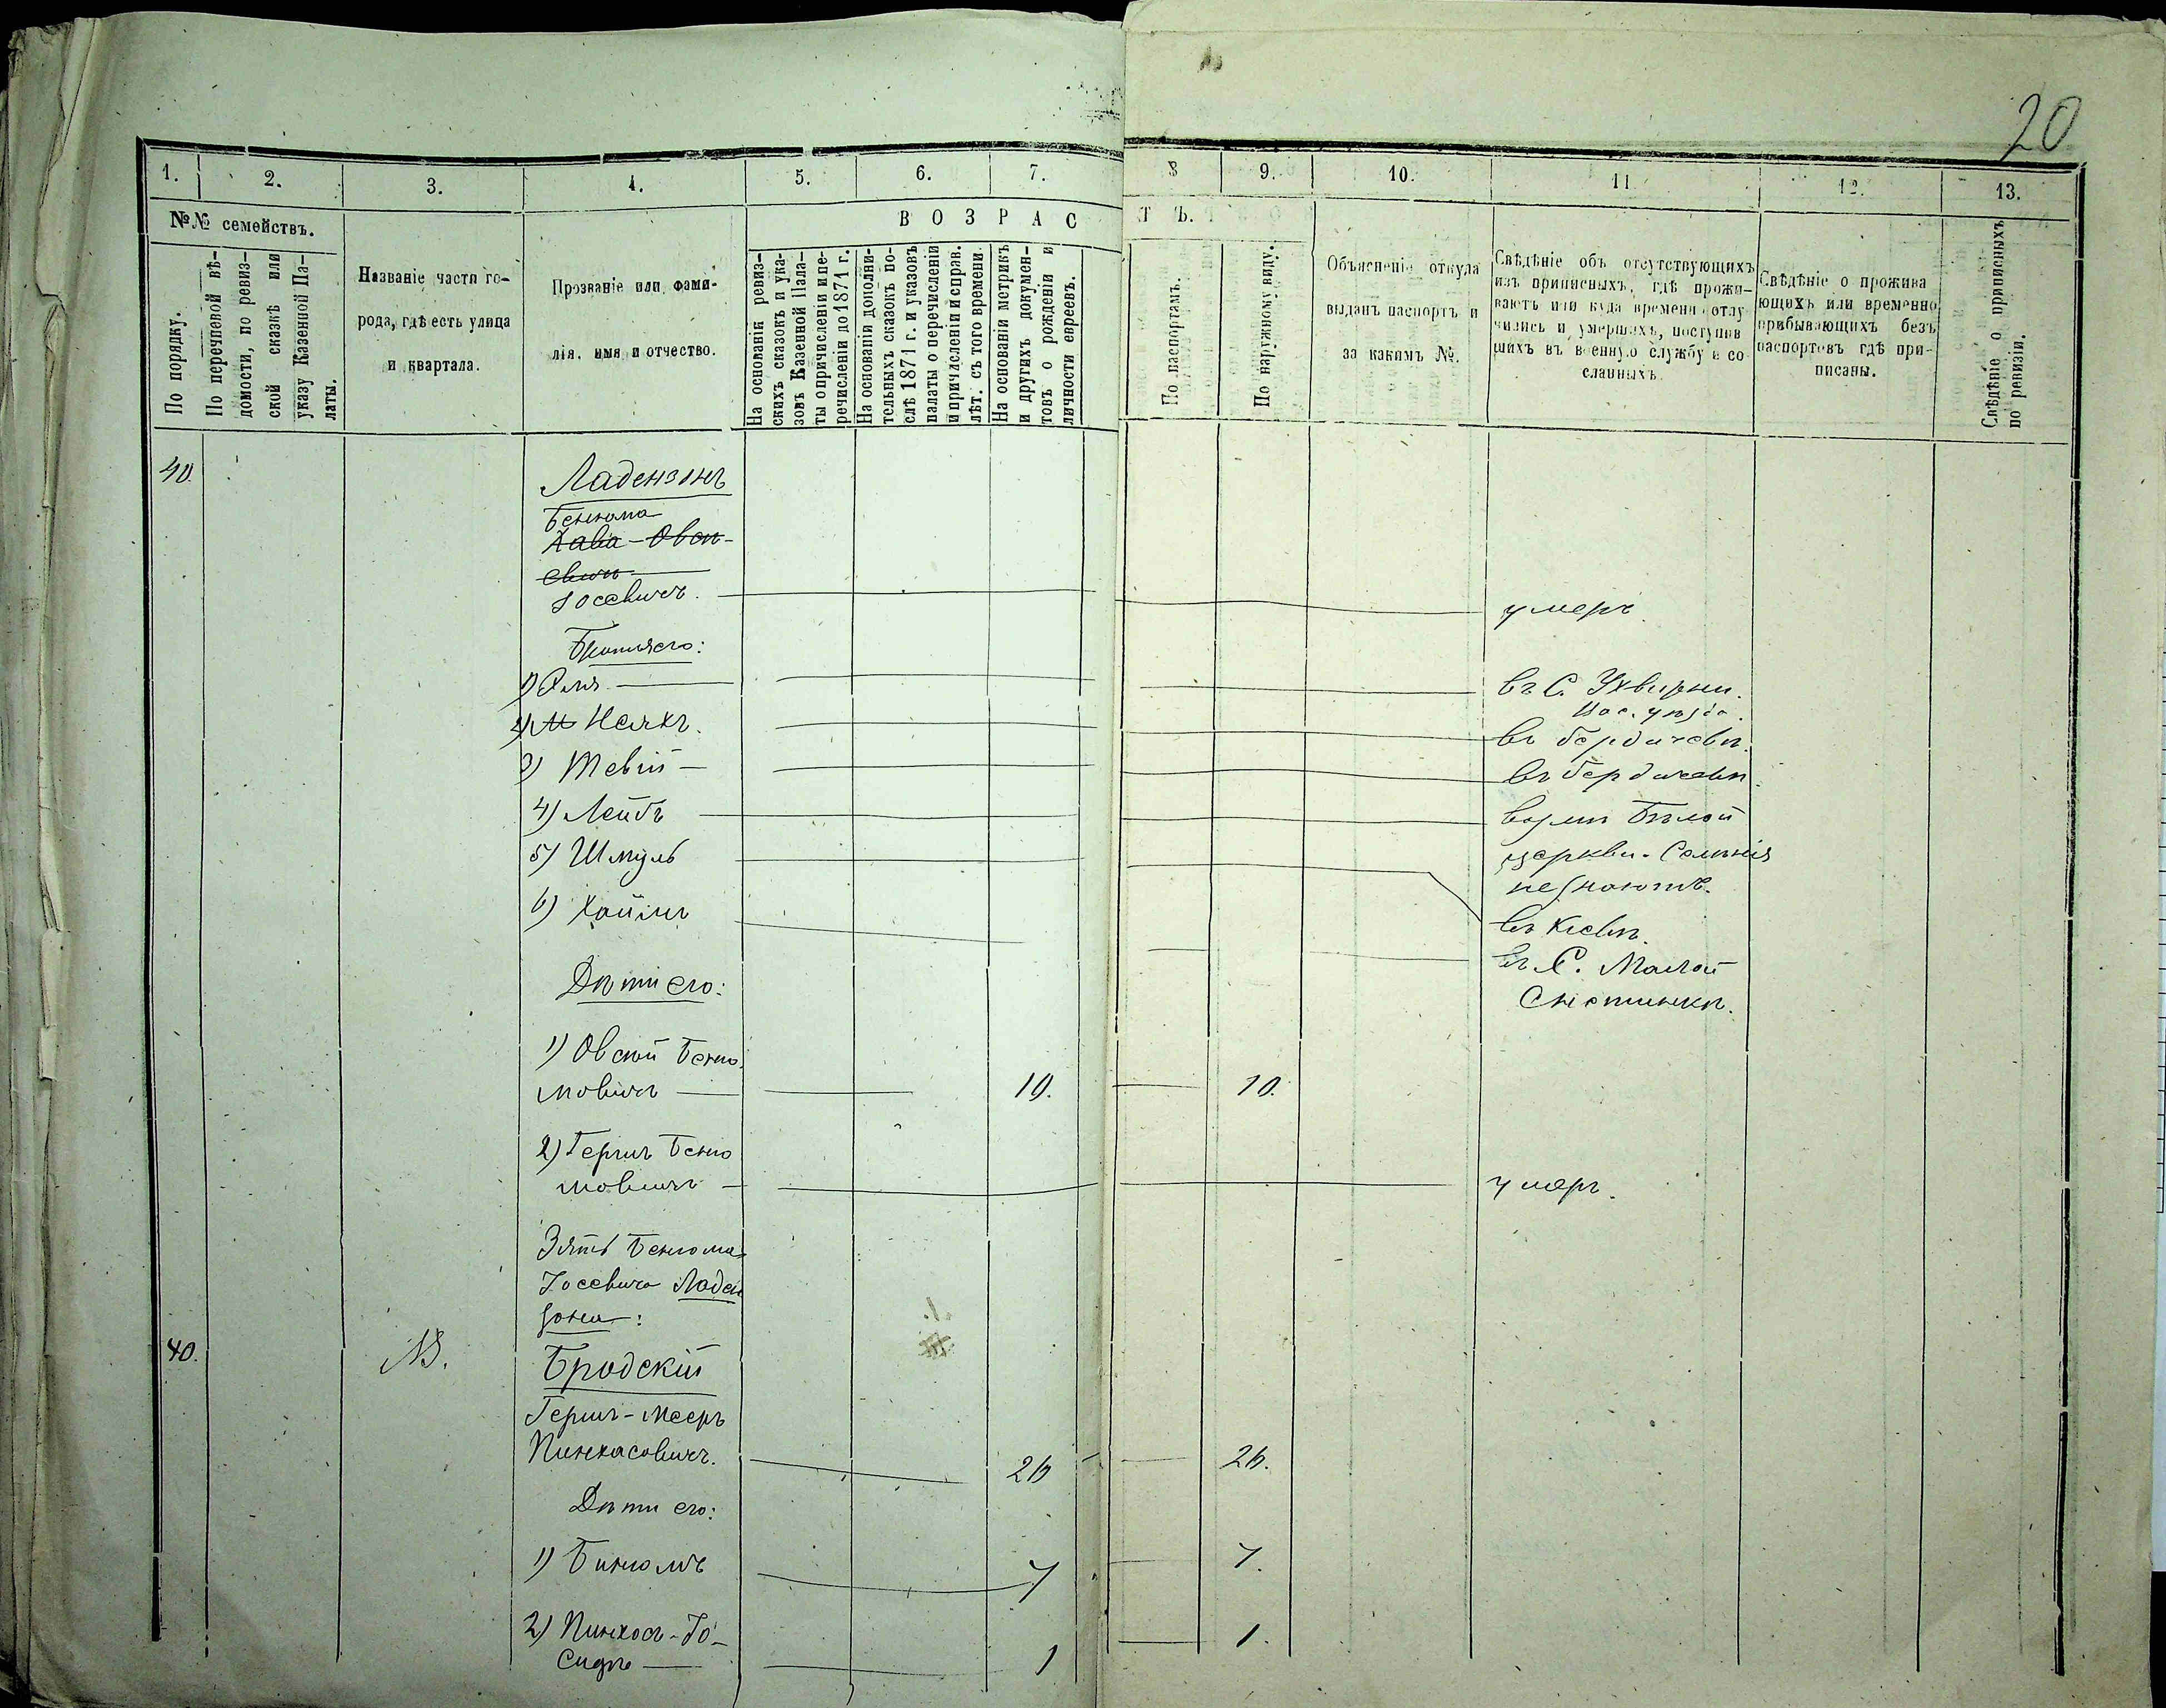 20
1. 2. 3. 4. 5. 6. 7. 8 9. 10. 11. 12. 13.
№№ семействъ.
По порядку.
По перечневой вѣ-
домости, по ревиз-
ской сказкѣ или
указу Казенной Па-
латы.
Названіе части го-
рода, гдѣ есть улица
и квартала.
Прозваніе или фами-
лія, имя и отчество.
ВОЗРАС
ТЪ.
На основаніи ревиз-
скихъ сказокъ и ука-
зовъ Казенной Пала-
ты о причисленіи и пе-
речисленіи до 1871 г.
На основаніи дополни-
тельныхъ сказокъ по-
слѣ 1871 г. и указовъ
палаты о перечисленіи
и причисленіи и справ.
лѣт. съ того времени.
На основаніи метрикъ
и другихъ докумен-
товъ о рожденіи и
личности евреевъ.
По паспортамъ.
По наружному виду.
Объясненіе откуда
выданъ паспортъ и
за какимъ №.
Свѣдѣніе объ отсутствующихъ
изъ приписныхъ, гдѣ прожи-
ваютъ или куда временно отлу
чились и умершихъ, поступив
шихъ въ военную службу и со
сланныхъ
Свѣдѣніе о прожива
ющихъ или временно
прибывающихъ безъ
паспортовъ гдѣ при-
писаны.
Свѣдѣніе о приписныхъ
по ревизіи.
40.
Ладензонъ
Бенюма
Хава-Овси-
евичъ
Іосевичъ. умеръ.
Братья его:
1) въ С.
2) Неахъ. въ Бердичевѣ.
3) Тевій въ Бердичевѣ.
4) Лейбъ Бѣлой
5) Шмуль церкви.
не знаютъ.
6) Хаимъ въ Кіевѣ.
въ С. Малой
Снетинкѣ.
Дѣти его:
1) Овсій Беню
мовичъ 10. 10.
2) Гершъ Беню
мовичъ умеръ.
Зять Бенюма
Іосевича Ладен
зона:
40. №3.
Бродскій
Гершъ-Мееръ
Пинхасовичъ. 26 26.
Дѣти его:
1) Бинюмъ 7 7.
2) Пинхосъ-Іо-
сидръ 1 1.